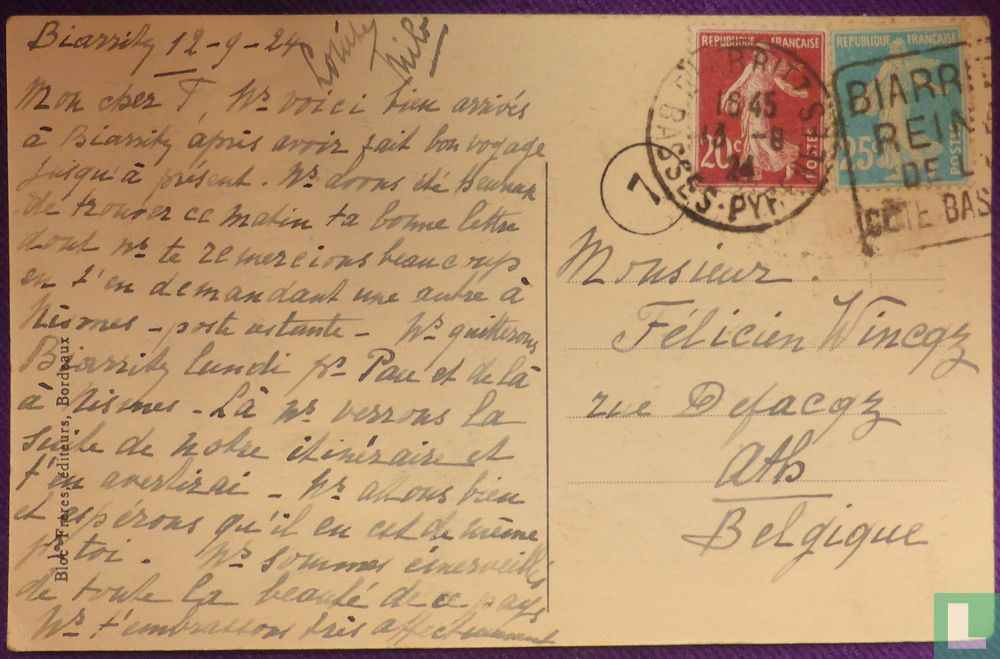 Biarritz 12-9-24
Mon cher F Ns voici bien arrivés
à Biarritz après avoir fait bon voyage
jusqu'à présent. Ns avons été heureux
de trouver ce matin ta bonne lettre
dont ns te remercions beaucoup
en t'en demandant une autre à
Nismes - poste restante - Ns quitterons
Biarritz lundi pr Pau et de là
à Nismes - Là ns verrons la
suite de notre itinéraire et
t'en avertirai - Ns allons bien
et espérons qu'il en est de même
pr toi. Ns sommes émerveillés
de toute la beauté de ce pays
Ns t'embrassons très affectueusement
Bloc Frères, éditeurs, Bordeaux
REPUBLIQUE FRANÇAISE
20c
POSTES
REPUBLIQUE FRANÇAISE
25c
POSTES
BIARRITZ
16 45
13 -9
24
BASSES-PYR
BIARRI
REIN
DE L
COTE BAS
7
Monsieur.
Félicien Wincqz
rue Defacqz
Ath
Belgique
L